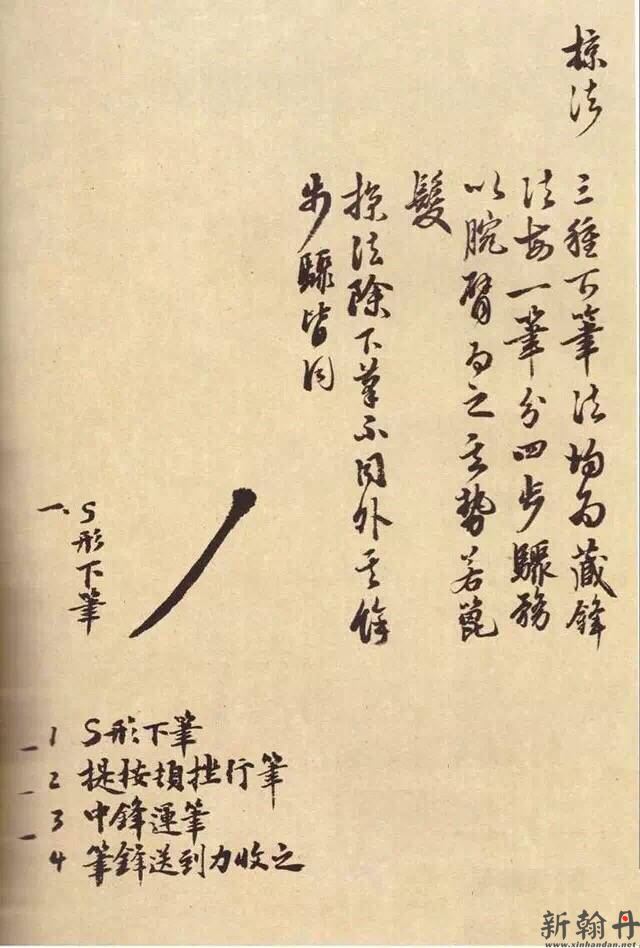 掠法
三種下筆法均為藏鋒
法每一筆分四步驟務
以腕臂為之其勢若篦
髮
掠法除下筆不同外其餘
步驟皆同
一、S形下筆
1 S形下筆
2 提按頓挫行筆
3 中鋒運筆
4 筆鋒送到力收之
新翰丹
www.xinhandan.net